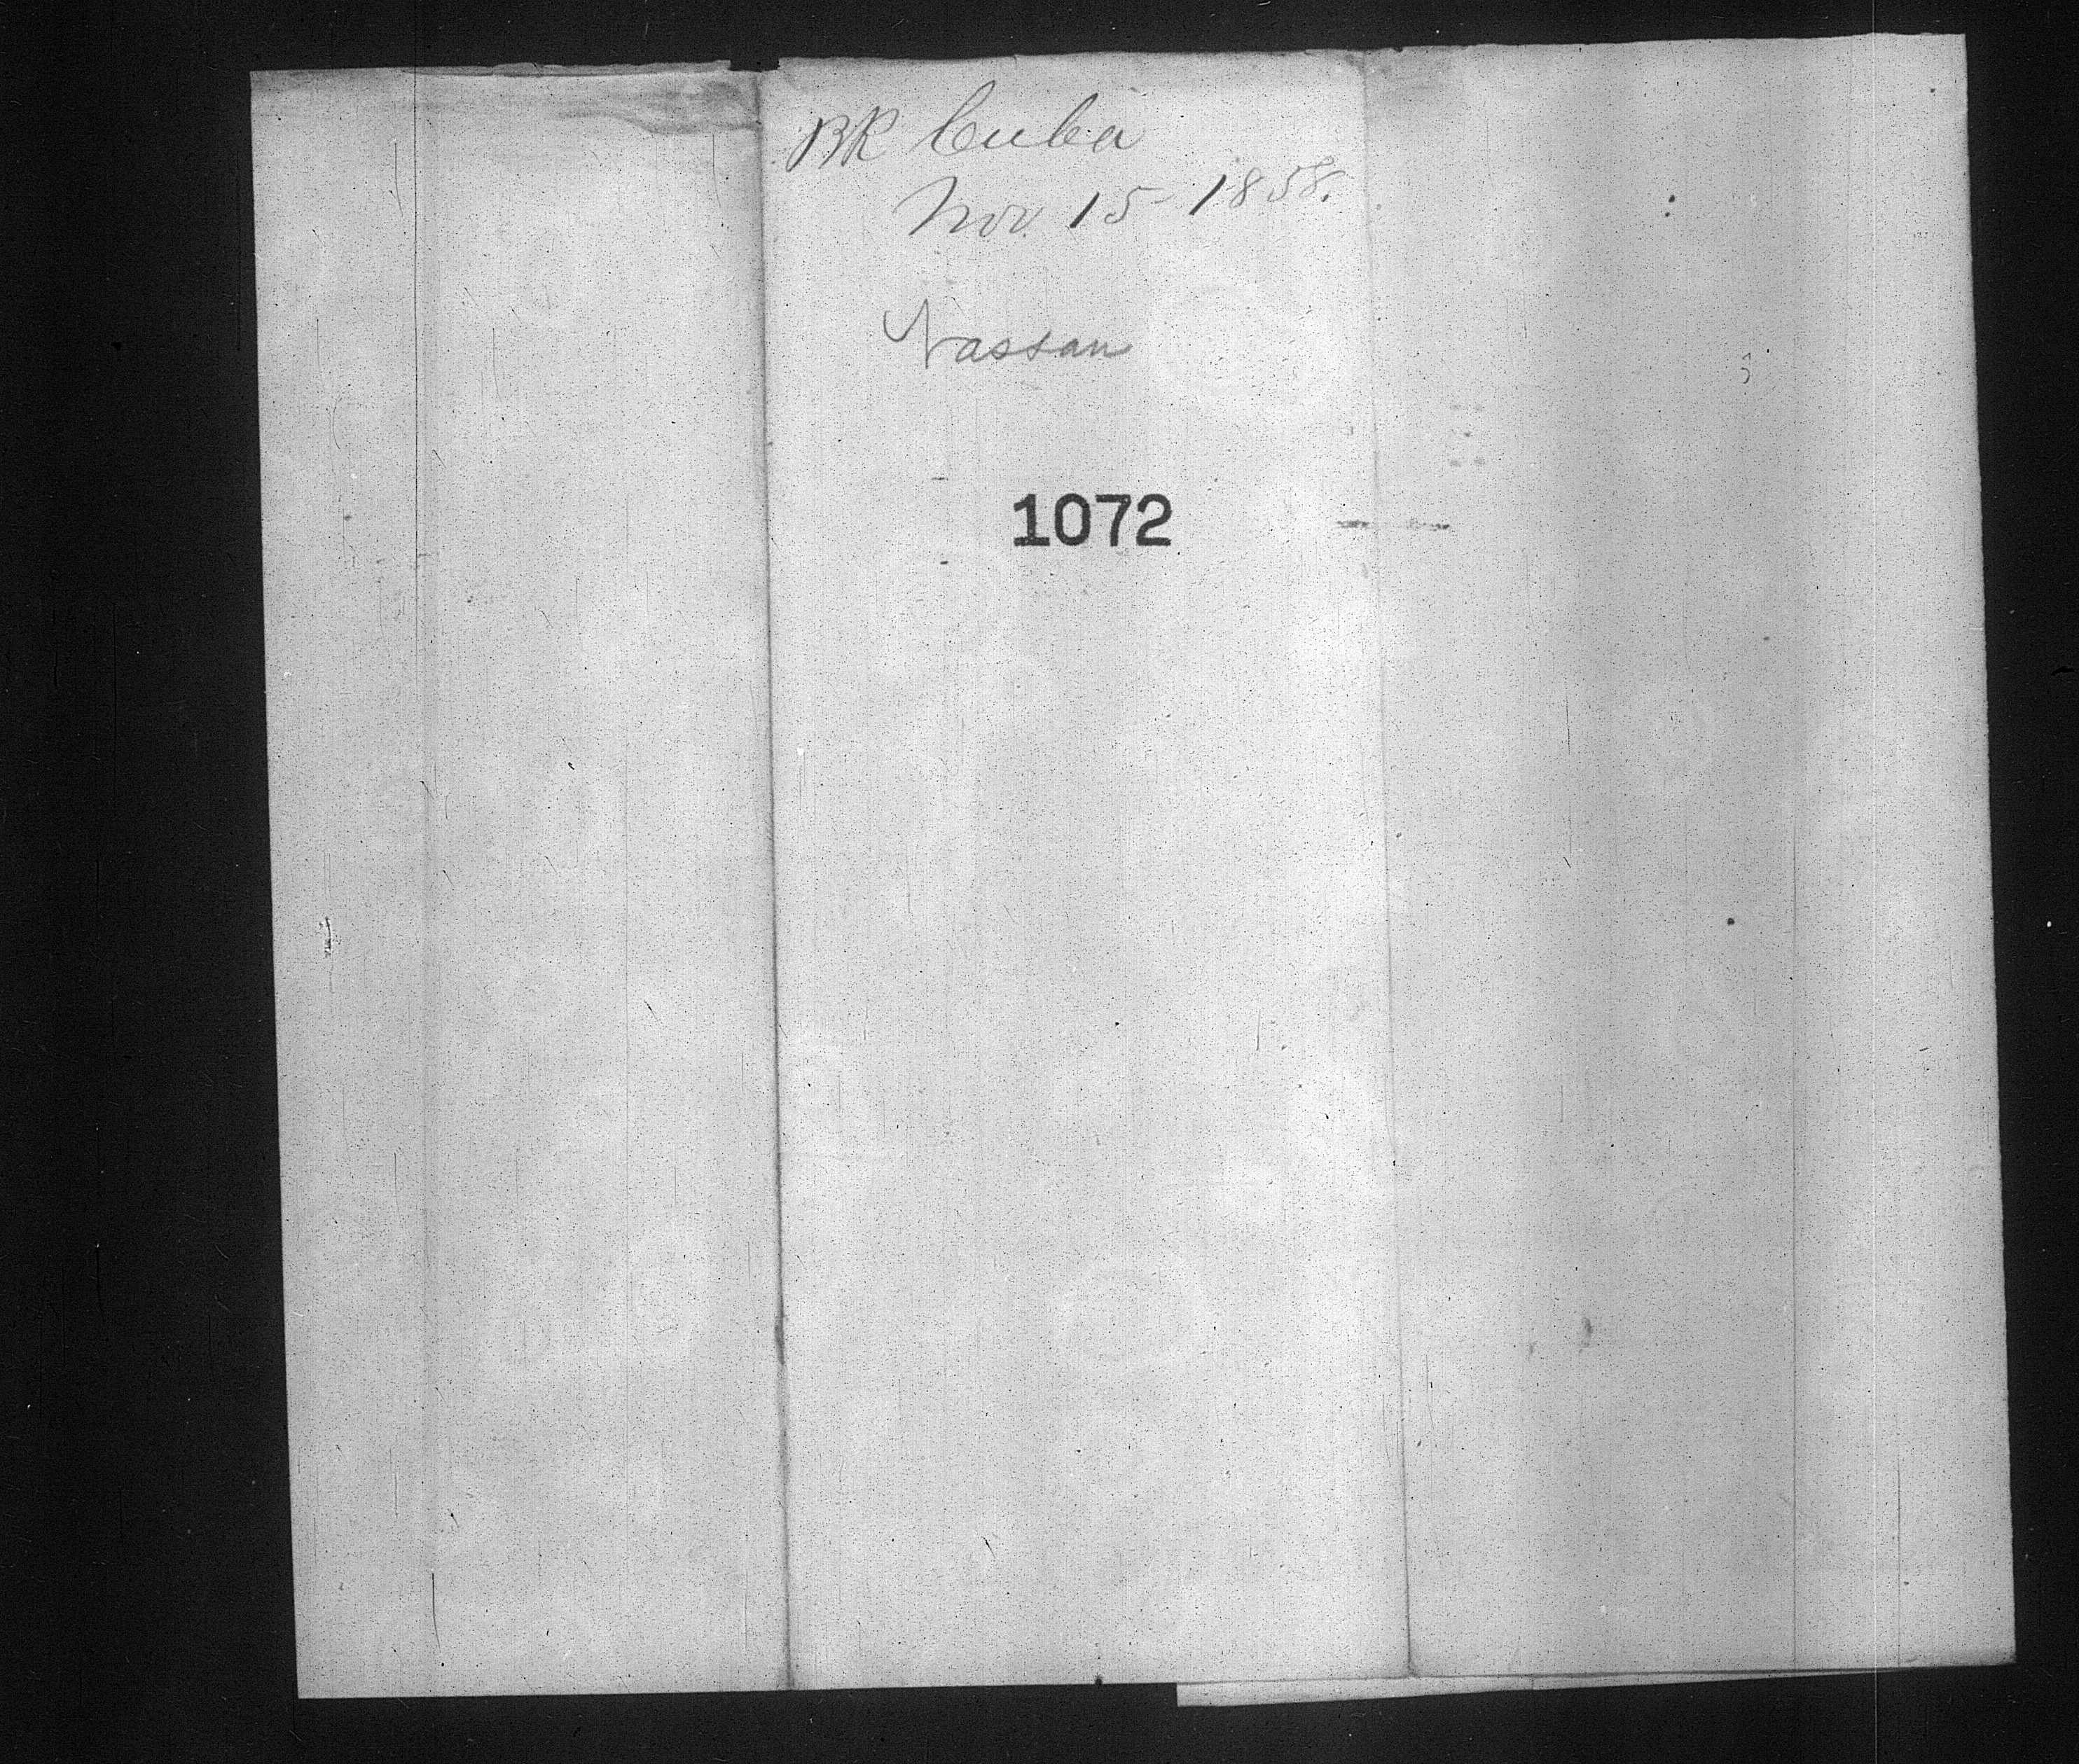 BK Cuba
Nov. 15 - 1858.
Nassau
1072